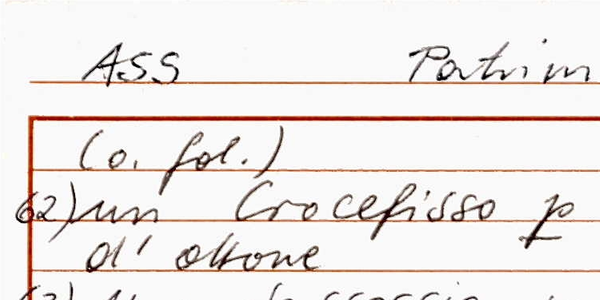 ASS Patrim
(o. fol.)
62) un Crocefisso p
d' ottone